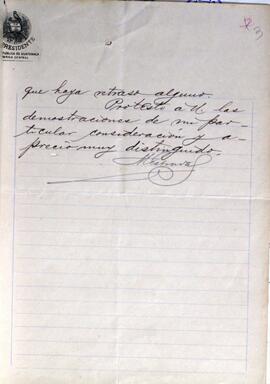 PRESIDENTE
REPUBLICA DE GUATEMALA
AMERICA CENTRAL
que haya retraso alguno.
Protesto á U las
demostraciones de mi par-
ticular consideración y a-
precio muy distinguido.